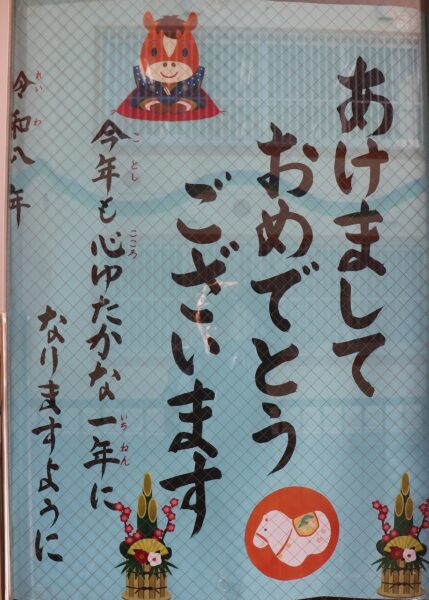 あけまして
おめでとう
ございます
今年も心ゆたかな一年に
なりますように
令和八年